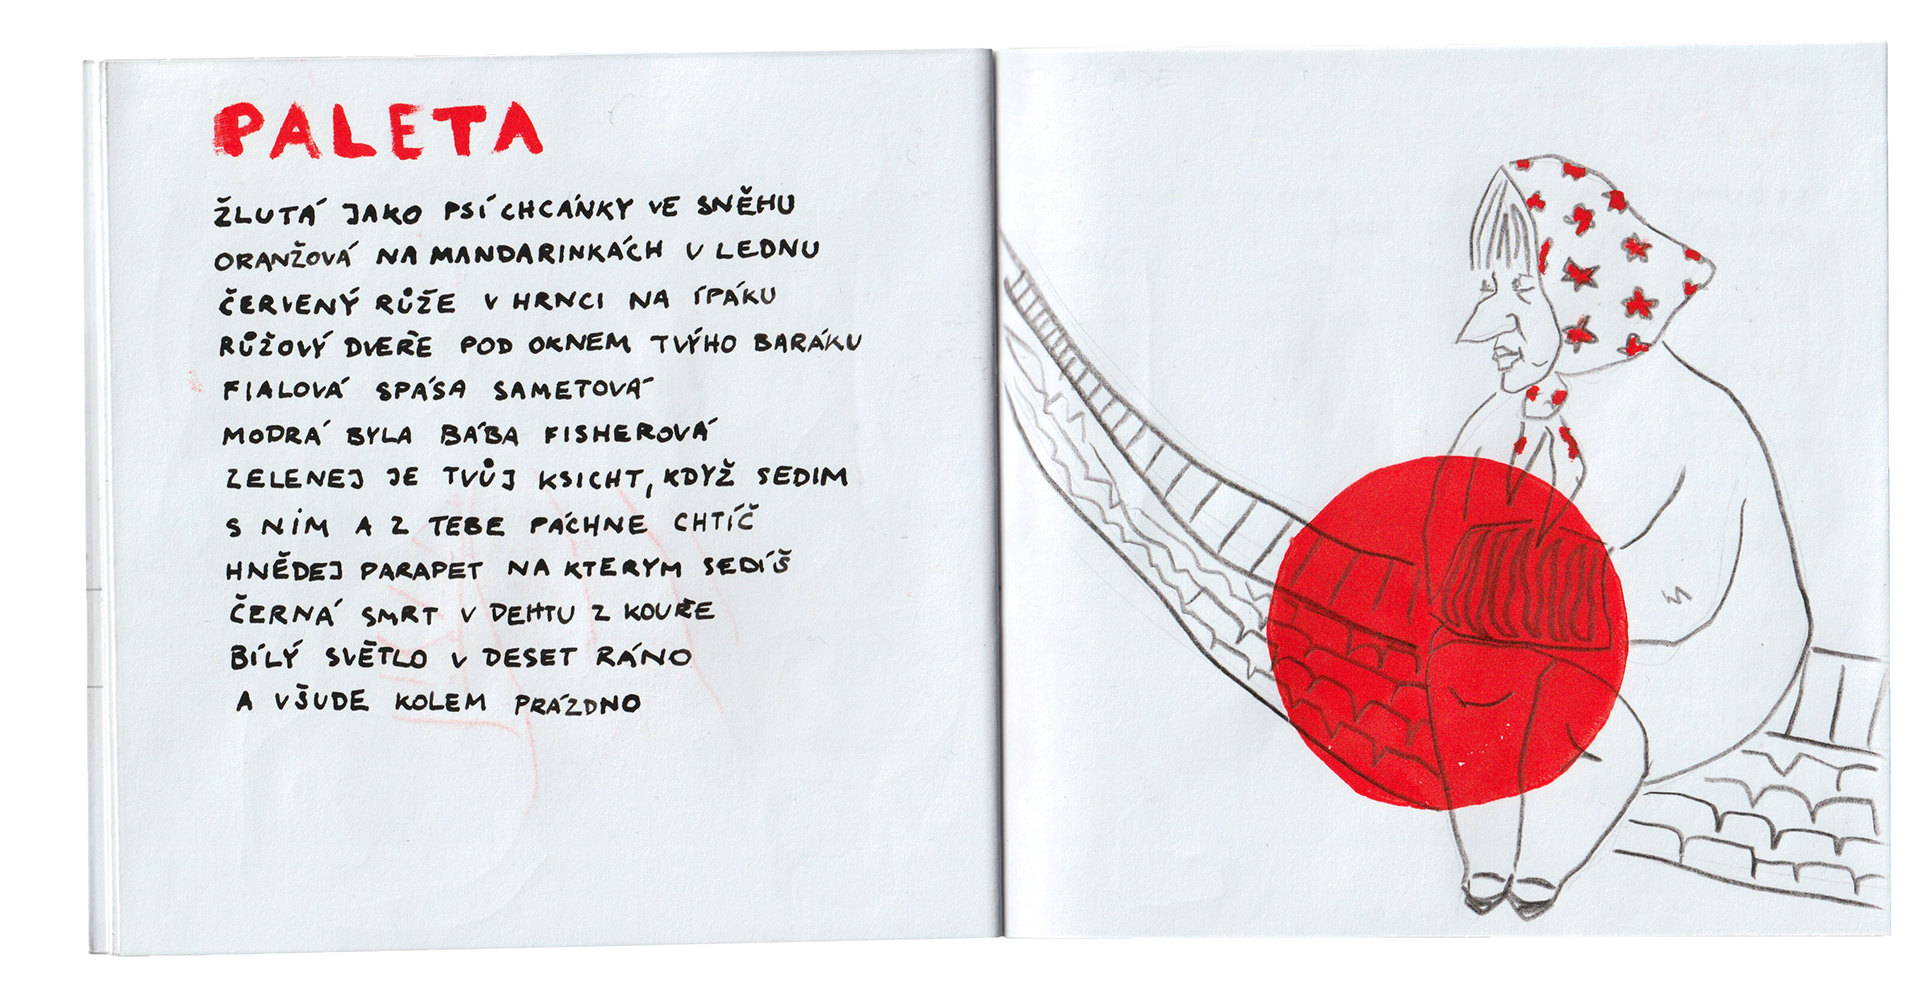 PALETA
ŽLUTÁ JAKO PSÍ CHCANKY VE SNĚHU
ORANŽOVÁ NA MANDARINKÁCH V LEDNU
ČERVENÝ RŮŽE V HRNCI NA ŠPÁKU
RŮŽOVÝ DVEŘE POD OKNEM TVÝHO BARÁKU
FIALOVÁ SPÁSA SAMETOVÁ
MODRÁ BYLA BÁBA FISHEROVÁ
ZELENEJ JE TVŮJ KSICHT, KDYŽ SEDIM
S NÍM A Z TEBE PÁCHNE CHTÍČ
HNĚDEJ PARAPET NA KTERYM SEDÍŠ
ČERNÁ SMRT V DEHTU Z KOUŘE
BÍLÝ SVĚTLO V DESET RÁNO
A VŠUDE KOLEM PRÁZDNO